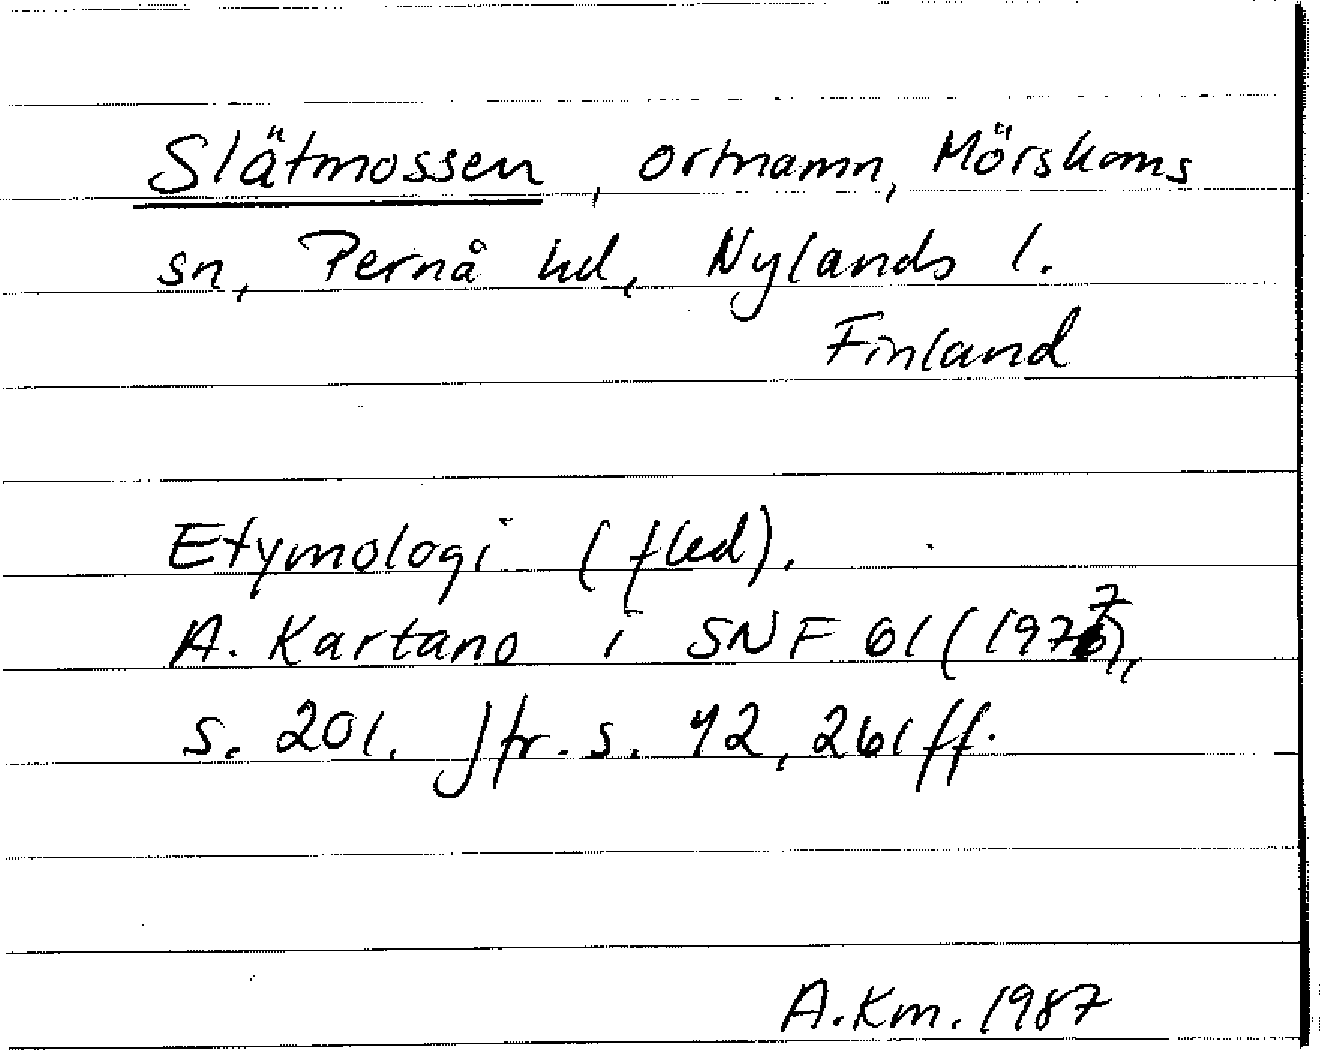 Slätmossen, ortnamn, Mörskoms
sn, Pernå hd, Nylands l.
Finland
Etymologi (fled).
A. Kartano i SNF 61 (1977),
s. 201. Jfr. s. 42, 261 ff.
A.Km. 1987